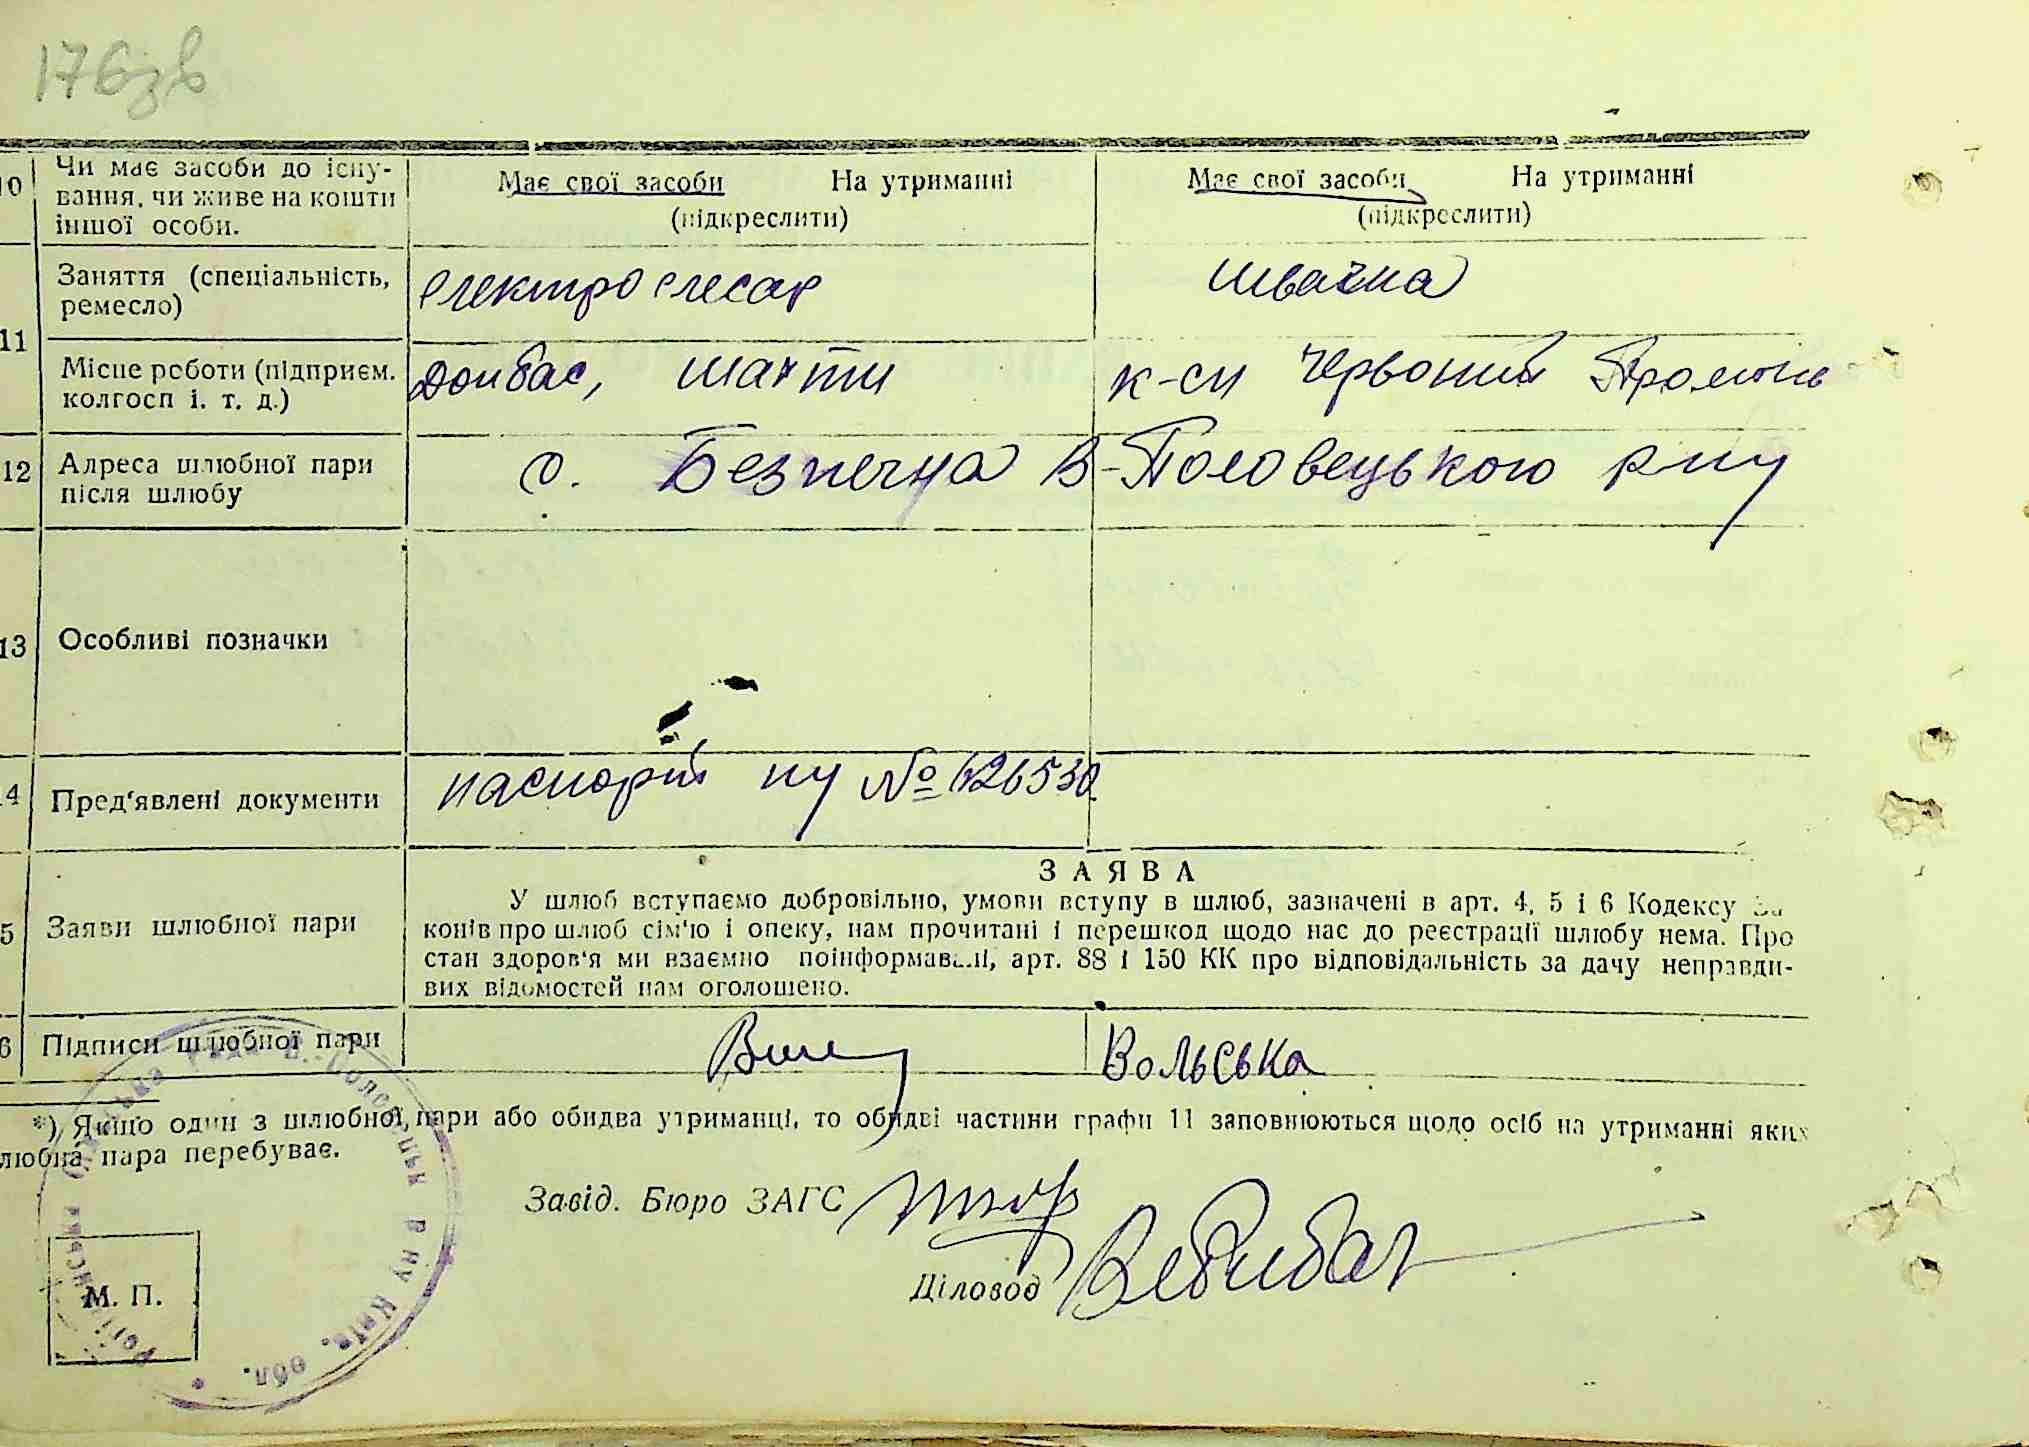 176зв
10 Чи має засоби до існу-
вання, чи живе на кошти
іншої особи.
Має свої засоби На утриманні
(підкреслити)
Має свої засоби На утриманні
(підкреслити)
11 Заняття (спеціальність,
ремесло)
електрослесар
швачка
Місце роботи (підприєм.
колгосп і. т. д.)
Донбас, шахти
к-сп Червоний Промінь
12 Адреса шлюбної пари
після шлюбу
с. Безпечна В-Половецького р-ну
13 Особливі позначки
14 Пред'явлені документи
паспорт пу № 626530
5 Заяви шлюбної пари
ЗАЯВА
У шлюб вступаємо добровільно, умови вступу в шлюб, зазначені в арт. 4, 5 і 6 Кодексу За
конів про шлюб сім'ю і опеку, нам прочитані і перешкод щодо нас до реєстрації шлюбу нема. Про
стан здоров'я ми взаємно поінформавалі, арт. 88 і 150 КК про відповідальність за дачу неправди-
вих відомостей нам оголошено.
6 Підписи шлюбної пари
Вольська
*) Якщо один з шлюбної пари або обидва утриманці, то обидві частини графи 11 заповнюються щодо осіб на утриманні яких
любна пара перебуває.
Завід. Бюро ЗАГС
Діловод
М. П.
Київ. обл.